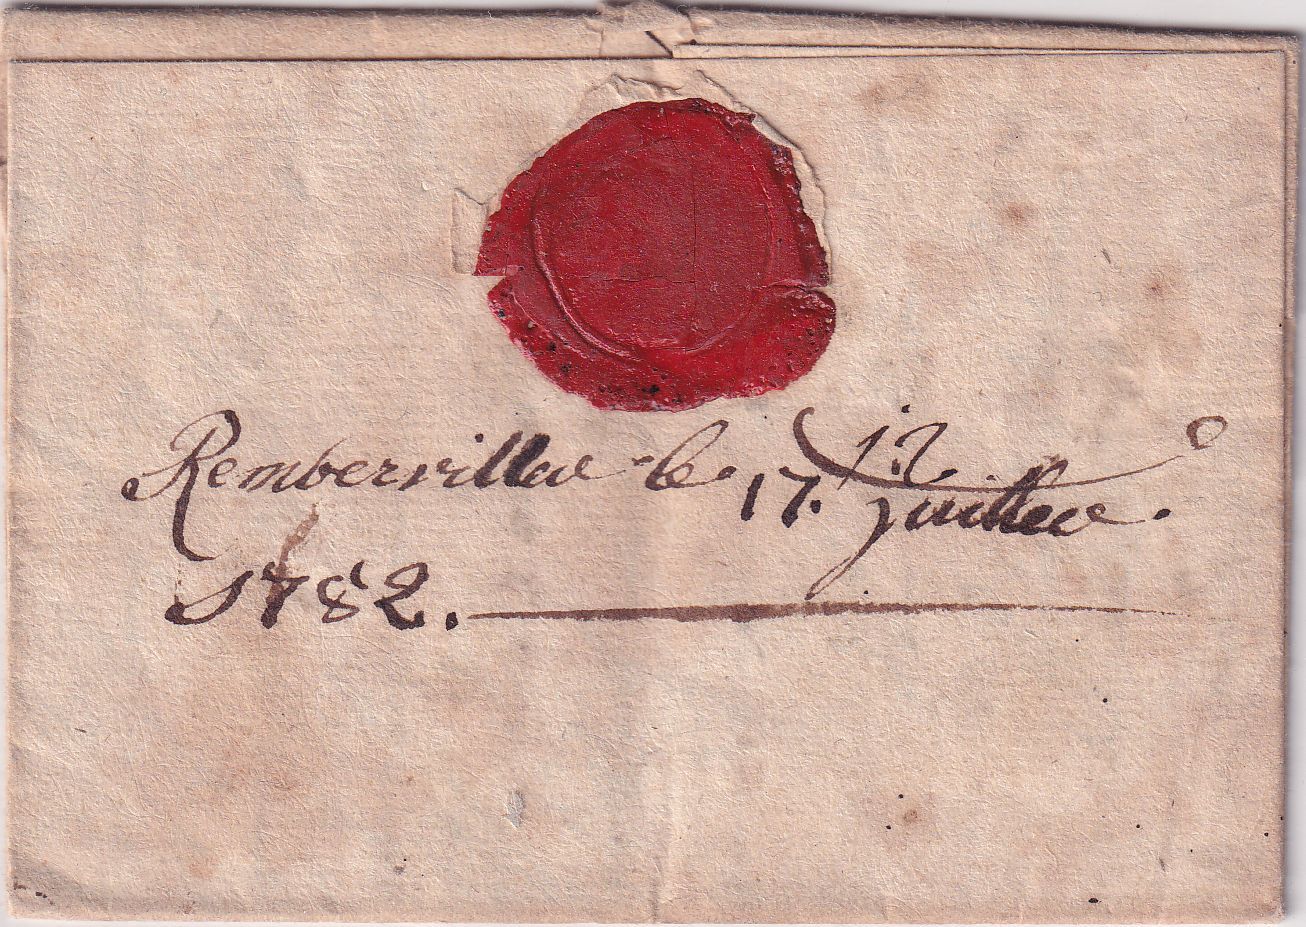 Rembervillee le 17. Juillee.
12
1782.